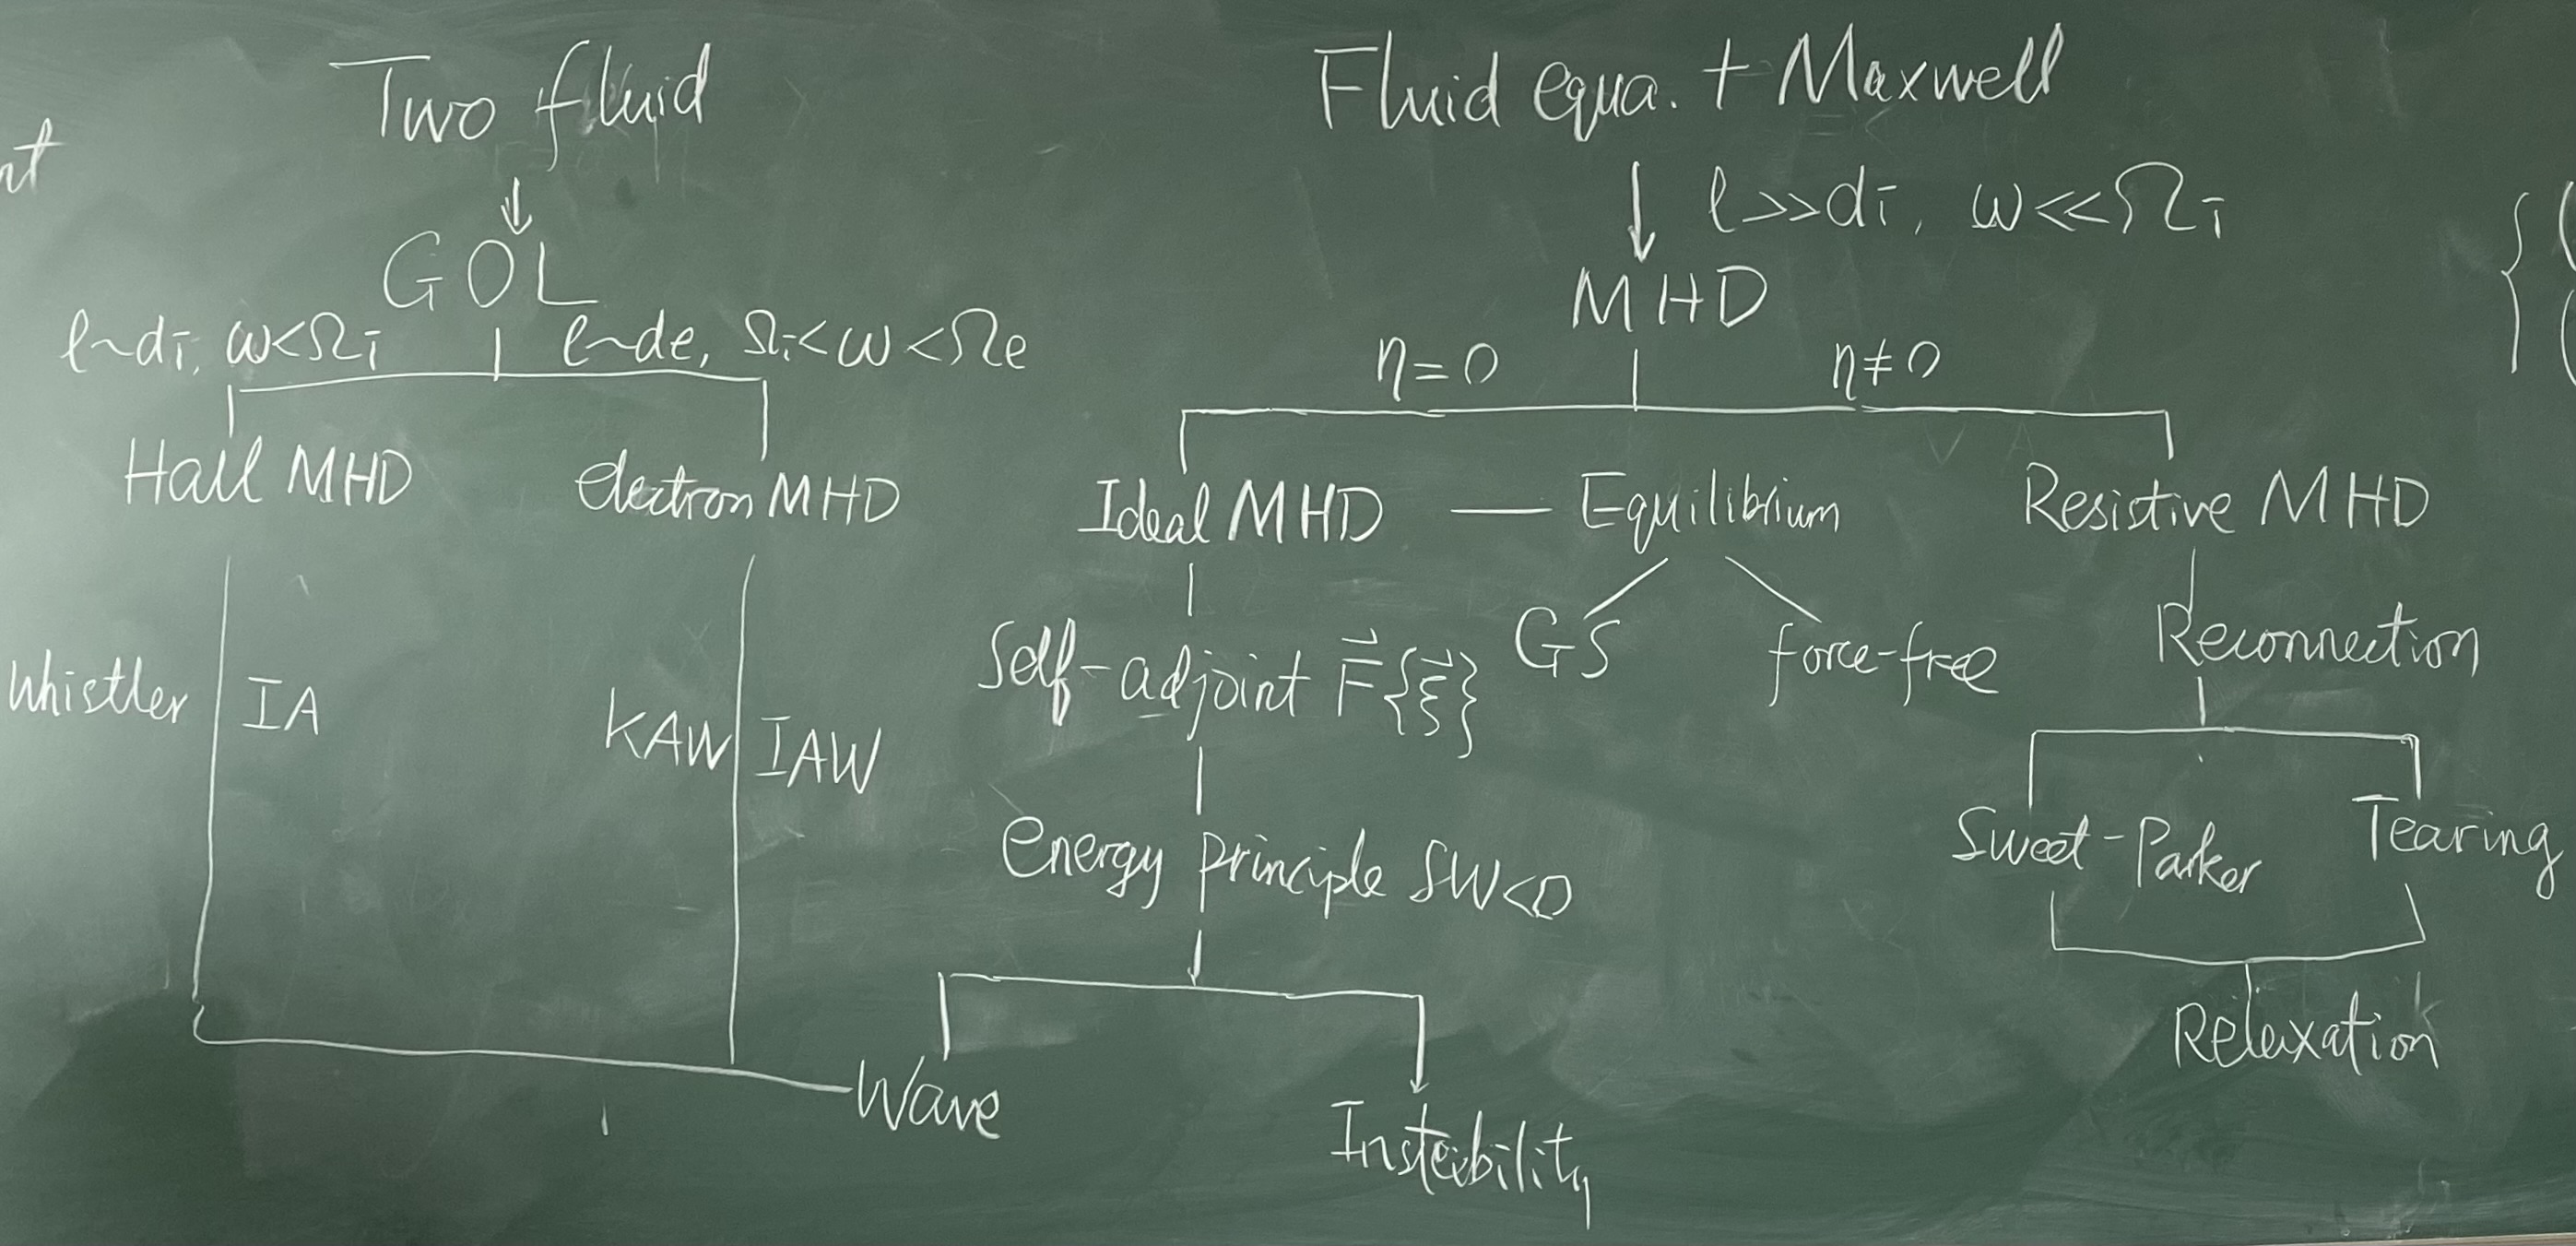 Two fluid
GOL
l~di, ω<Ωi
l~de, Ωi<ω<Ωe
Hall MHD
electron MHD
Whistler
IA
KAW
IAW
Fluid equa. + Maxwell
l>>di, ω<<Ωi
MHD
η=0
η≠0
Ideal MHD — Equilibrium
Resistive MHD
GS
force-free
Self-adjoint F⃗{ξ⃗}
Energy principle δW<0
Wave
Instability
Reconnection
Sweet-Parker
Tearing
Relaxation